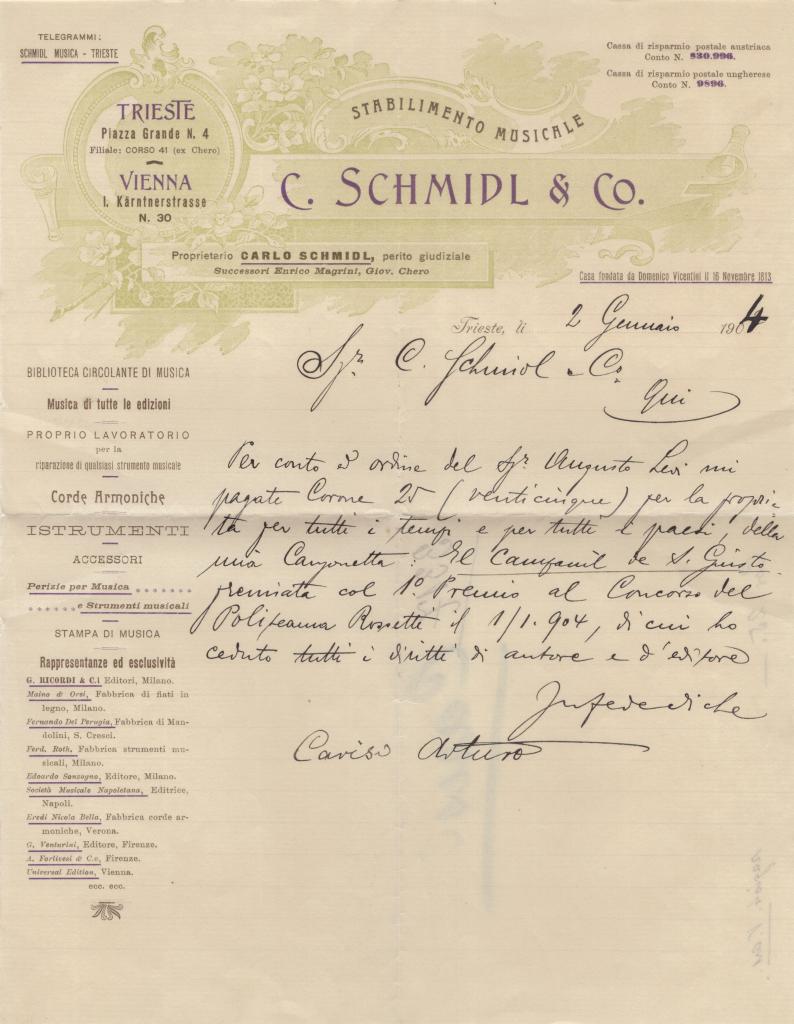 TELEGRAMMI:
SCHMIDL MUSICA - TRIESTE
Cassa di risparmio postale austriaca
Conto N. 830.996.
Cassa di risparmio postale ungherese
Conto N. 9896.
TRIESTE
Piazza Grande N. 4
Filiale: CORSO 41 (ex Chero)
VIENNA
I. Kärntnerstrasse
N. 30
STABILIMENTO MUSICALE
C. SCHMIDL & CO.
Proprietario CARLO SCHMIDL, perito giudiziale
Successori Enrico Magrini, Giov. Chero
Casa fondata da Domenico Vicentini il 16 Novembre 1813
Trieste, li 2 Gennaio 1904
Sigr. C. Schmidl & Co
Qui
Per conto ed ordine del Sigr Augusto Levi mi
pagate Corone 25 (venticinque) per la proprie-
tà per tutti i tempi e per tutti i paesi, della
mia Canzonetta: El Campanil de S. Giusto
premiata col 1º Premio al Concorso del
Politeama Rossetti il 1/1.904, di cui ho
ceduto tutti i diritti di autore e d'editore
In fede di che
Caviso Arturo
BIBLIOTECA CIRCOLANTE DI MUSICA
Musica di tutte le edizioni
PROPRIO LAVORATORIO
per la
riparazione di qualsiasi strumento musicale
Corde Armoniche
ISTRUMENTI
ACCESSORI
Perizie per Musica
e Strumenti musicali
STAMPA DI MUSICA
Rappresentanze ed esclusività
G. RICORDI & C.i Editori, Milano.
Maino & Orsi, Fabbrica di fiati in
legno, Milano.
Fernando Del Perugia, Fabbrica di Man-
dolini, S. Cresci.
Ferd. Roth, Fabbrica strumenti mu-
sicali, Milano.
Edoardo Sonzogno, Editore, Milano.
Società Musicale Napoletana, Editrice,
Napoli.
Eredi Nicola Bella, Fabbrica corde ar-
moniche, Verona.
G. Venturini, Editore, Firenze.
A. Forlivesi & C.o, Firenze.
Universal Edition, Vienna.
ecc. ecc.